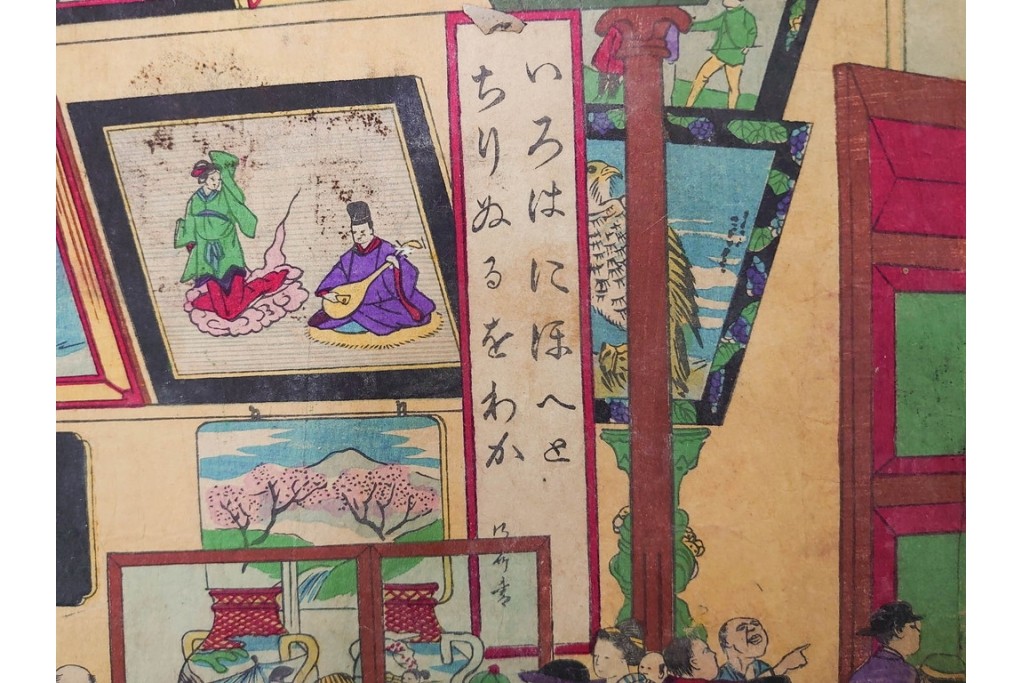 いろはにほへと
ちりぬるをわか